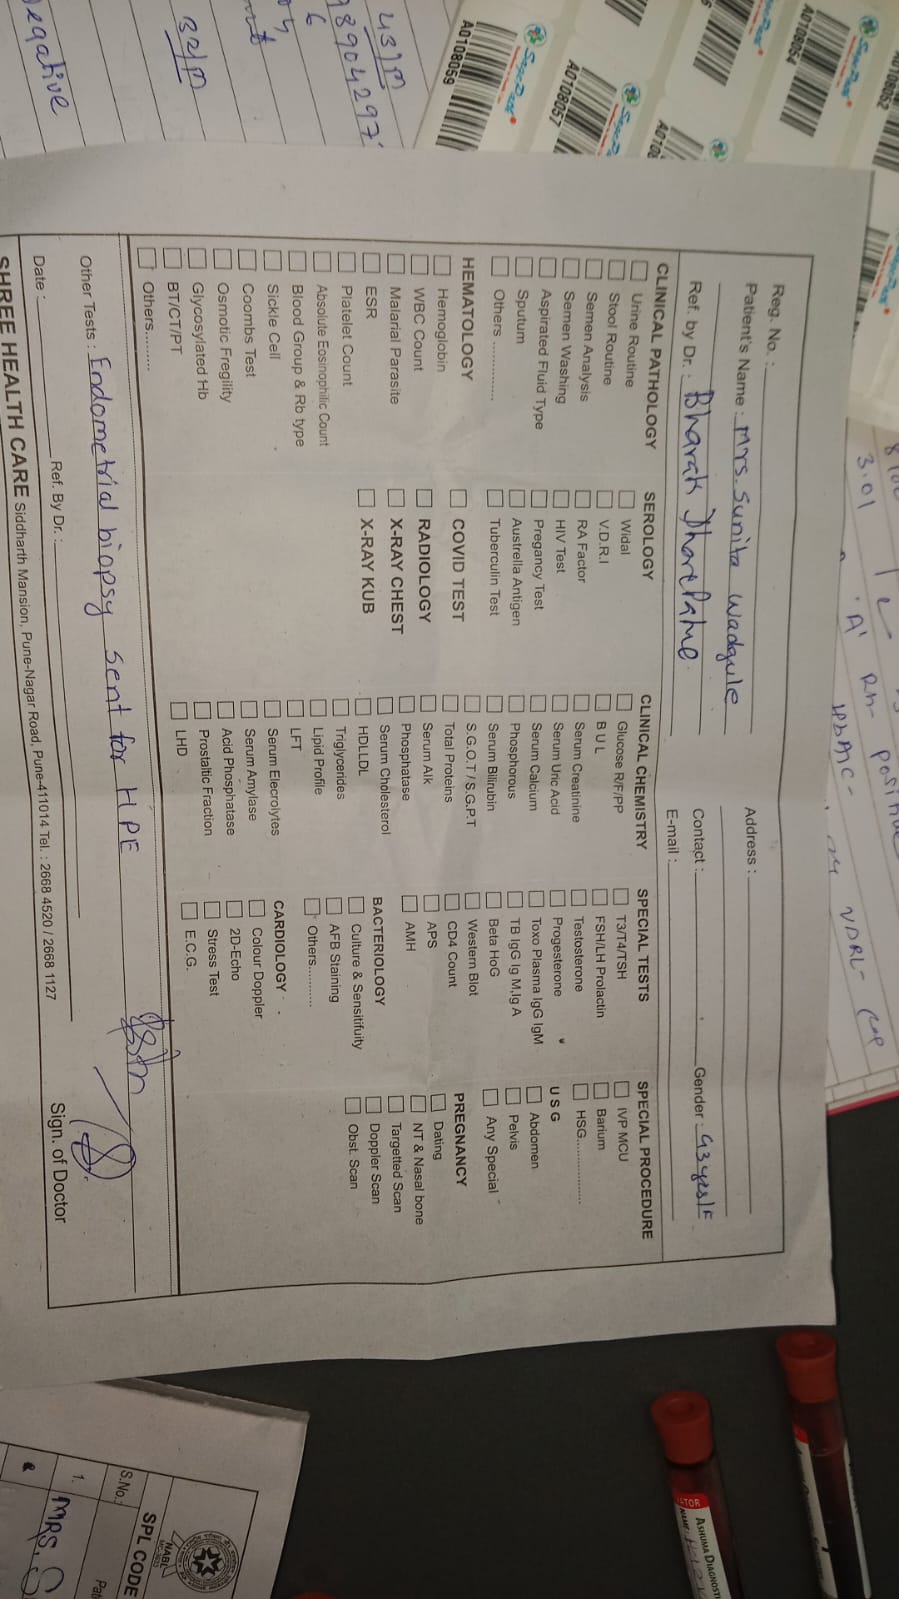 Reg. No. :
Patient's Name : Mrs. Sunita Wadgule
Address :
Ref. by Dr. :
Contact :
Gender : 43yes/F
E-mail :
CLINICAL PATHOLOGY
Urine Routine
Stool Routine
Semen Analysis
Semen Washing
Aspirated Fluid Type
Sputum
Others ............
HEMATOLOGY
Hemoglobin
WBC Count
Malarial Parasite
ESR
Platelet Count
Absolute Eosinophilic Count
Blood Group & Rb type
Sickle Cell
Coombs Test
Osmotic Fregility
Glycosylated Hb
BT/CT/PT
Others.........
SEROLOGY
Widal
V.D.R.I
RA Factor
HIV Test
Pregancy Test
Austrella Antigen
Tuberculin Test
COVID TEST
RADIOLOGY
X-RAY CHEST
X-RAY KUB
CLINICAL CHEMISTRY
Glucose R/F/PP
B U L
Serum Creatinine
Serum Uric Acid
Serum Calcium
Phosphorous
Serum Bilirubin
S.G.O.T / S.G.P.T
Total Proteins
Serum Alk
Phosphatase
Serum Cholesterol
HDLLDL
Triglycerides
Lipid Profile
LFT
Serum Elecrolytes
Serum Amylase
Acid Phosphatase
Prostaltic Fraction
LHD
SPECIAL TESTS
T3/T4/TSH
FSH/LH Prolactin
Testosterone
Progesterone
Toxo Plasma IgG IgM
TB IgG Ig M,Ig A
Beta HoG
Western Blot
CD4 Count
APS
AMH
BACTERIOLOGY
Culture & Sensitifuity
AFB Staining
Others..........
CARDIOLOGY
Colour Doppler
2D-Echo
Stress Test
E.C.G.
SPECIAL PROCEDURE
IVP MCU
Barium
HSG................
U S G
Abdomen
Pelvis
Any Special
PREGNANCY
Dating
NT & Nasal bone
Targetted Scan
Doppler Scan
Obst. Scan
Other Tests : Endometrial biopsy sent for HPE
Date :
Ref. By Dr. :
Sign. of Doctor
SHREE HEALTH CARE Siddharth Mansion, Pune-Nagar Road, Pune-411014 Tel. : 2668 4520 / 2668 1127
A0108059
A0108057
A0108064
43/m
32/m
negative
3.01
'A' Rh- positive
VDRL-
SPL CODE
S.No.:
1. Mrs. S
NABL
ASHUMA DIAGNOST